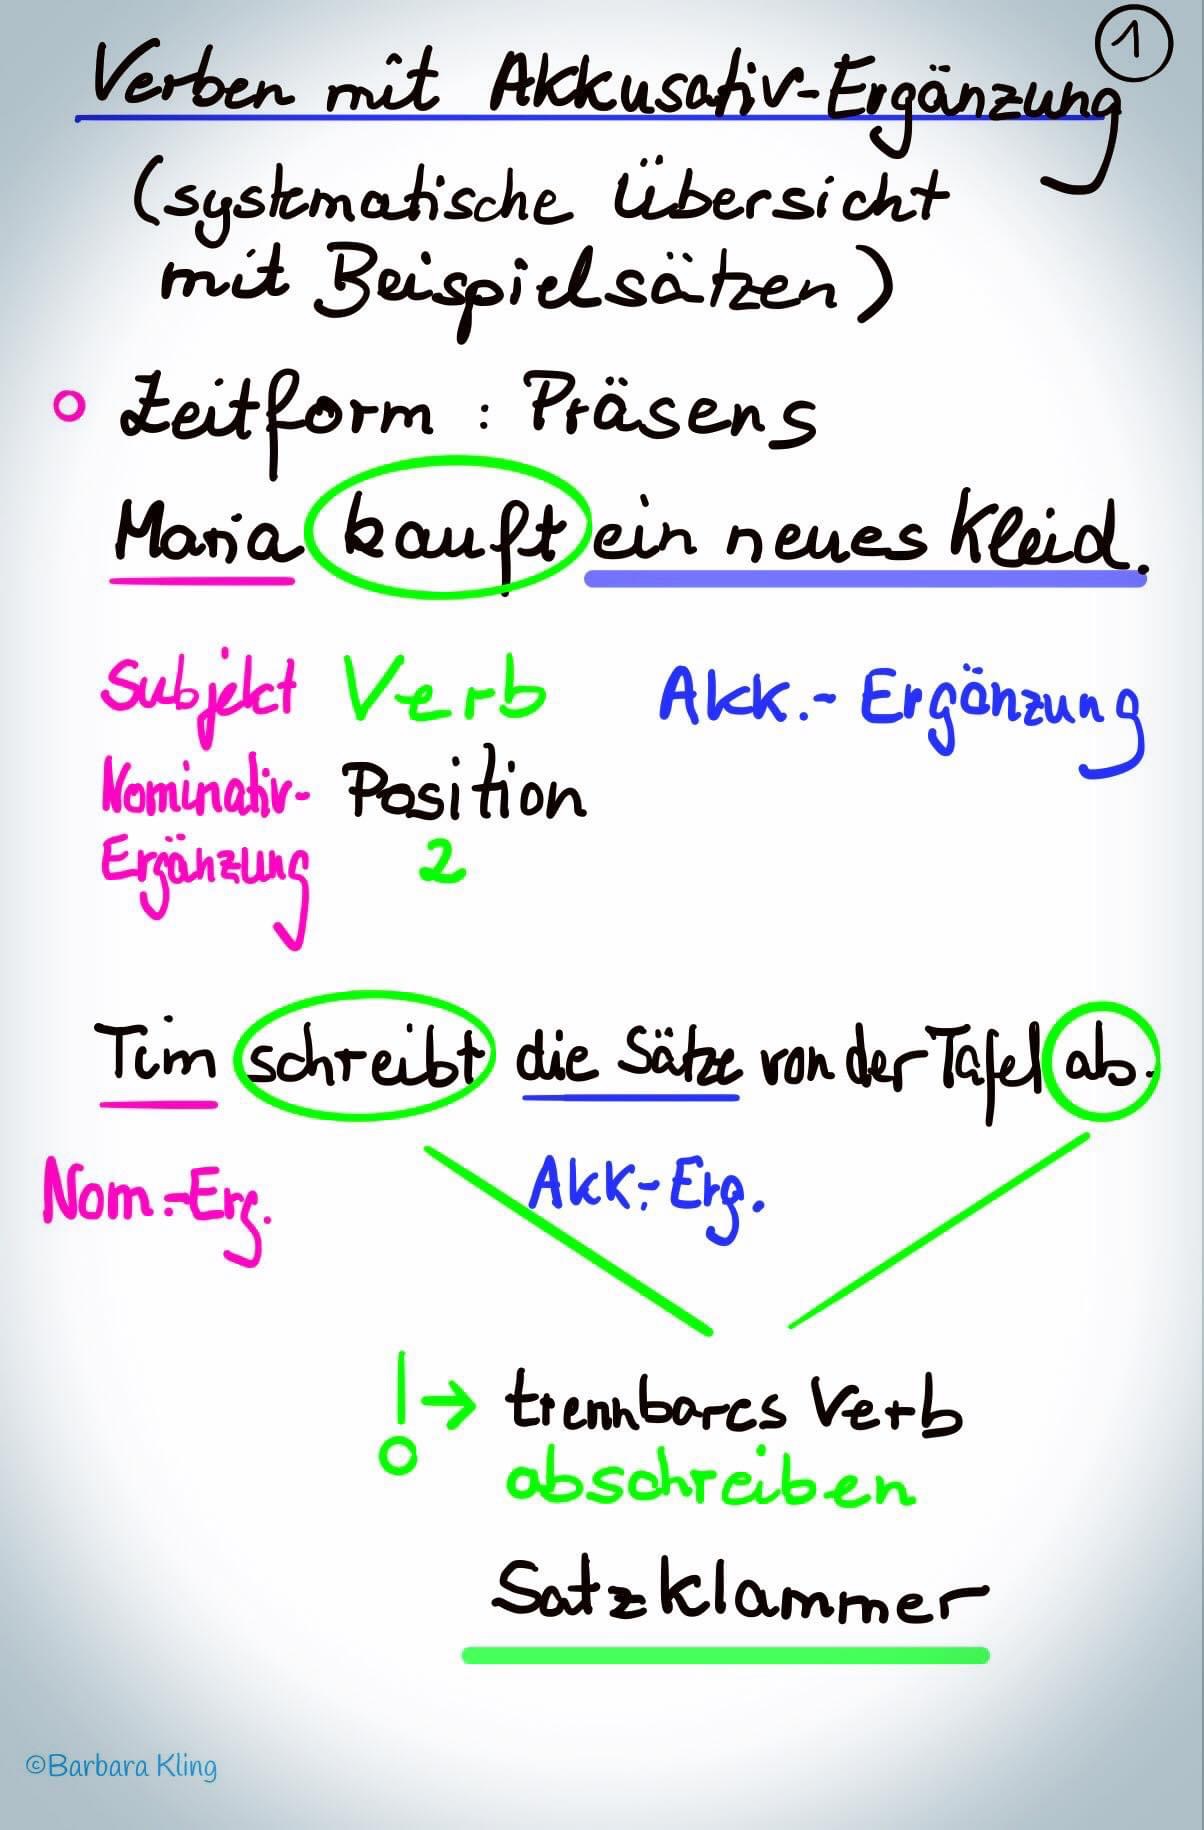 1
Verben mit Akkusativ-Ergänzung
(systematische Übersicht
mit Beispielsätzen)
Zeitform: Präsens
Maria kauft ein neues Kleid.
Subjekt Verb Akk.-Ergänzung
Nominativ- Position
Ergänzung 2
Tim schreibt die Sätze von der Tafel ab.
Nom.-Erg. Akk.-Erg.
! → trennbares Verb
abschreiben
Satzklammer
©Barbara Kling